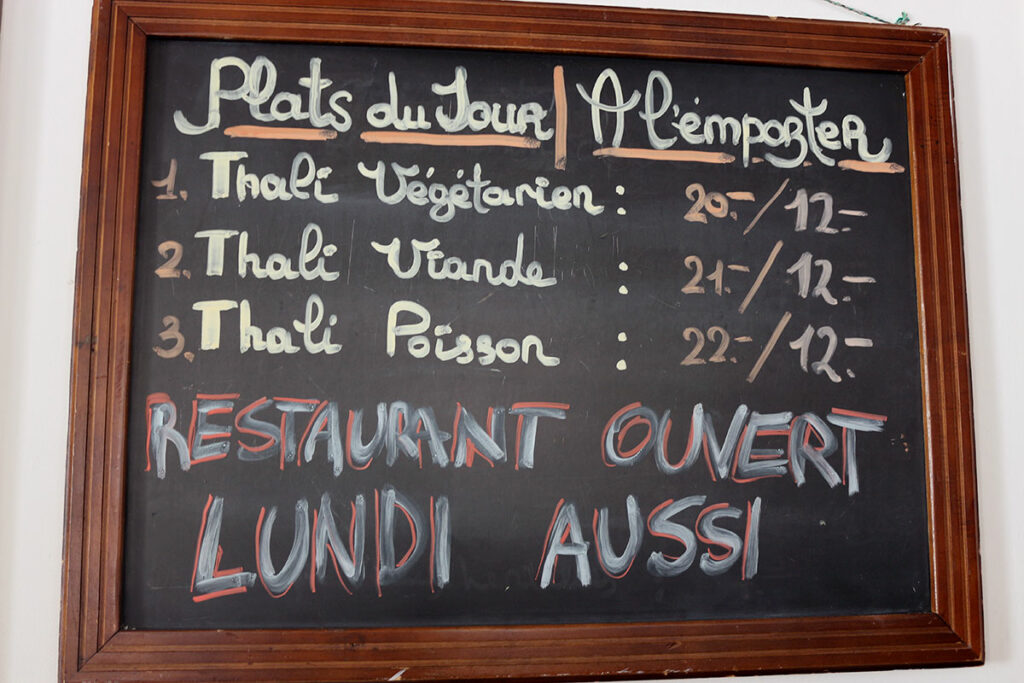 Plats du Jour | A l'émporter
1. Thali Végétarien : 20.-/12.-
2. Thali Viande : 21.-/12.-
3. Thali Poisson : 22.-/12.-
RESTAURANT OUVERT
LUNDI AUSSI